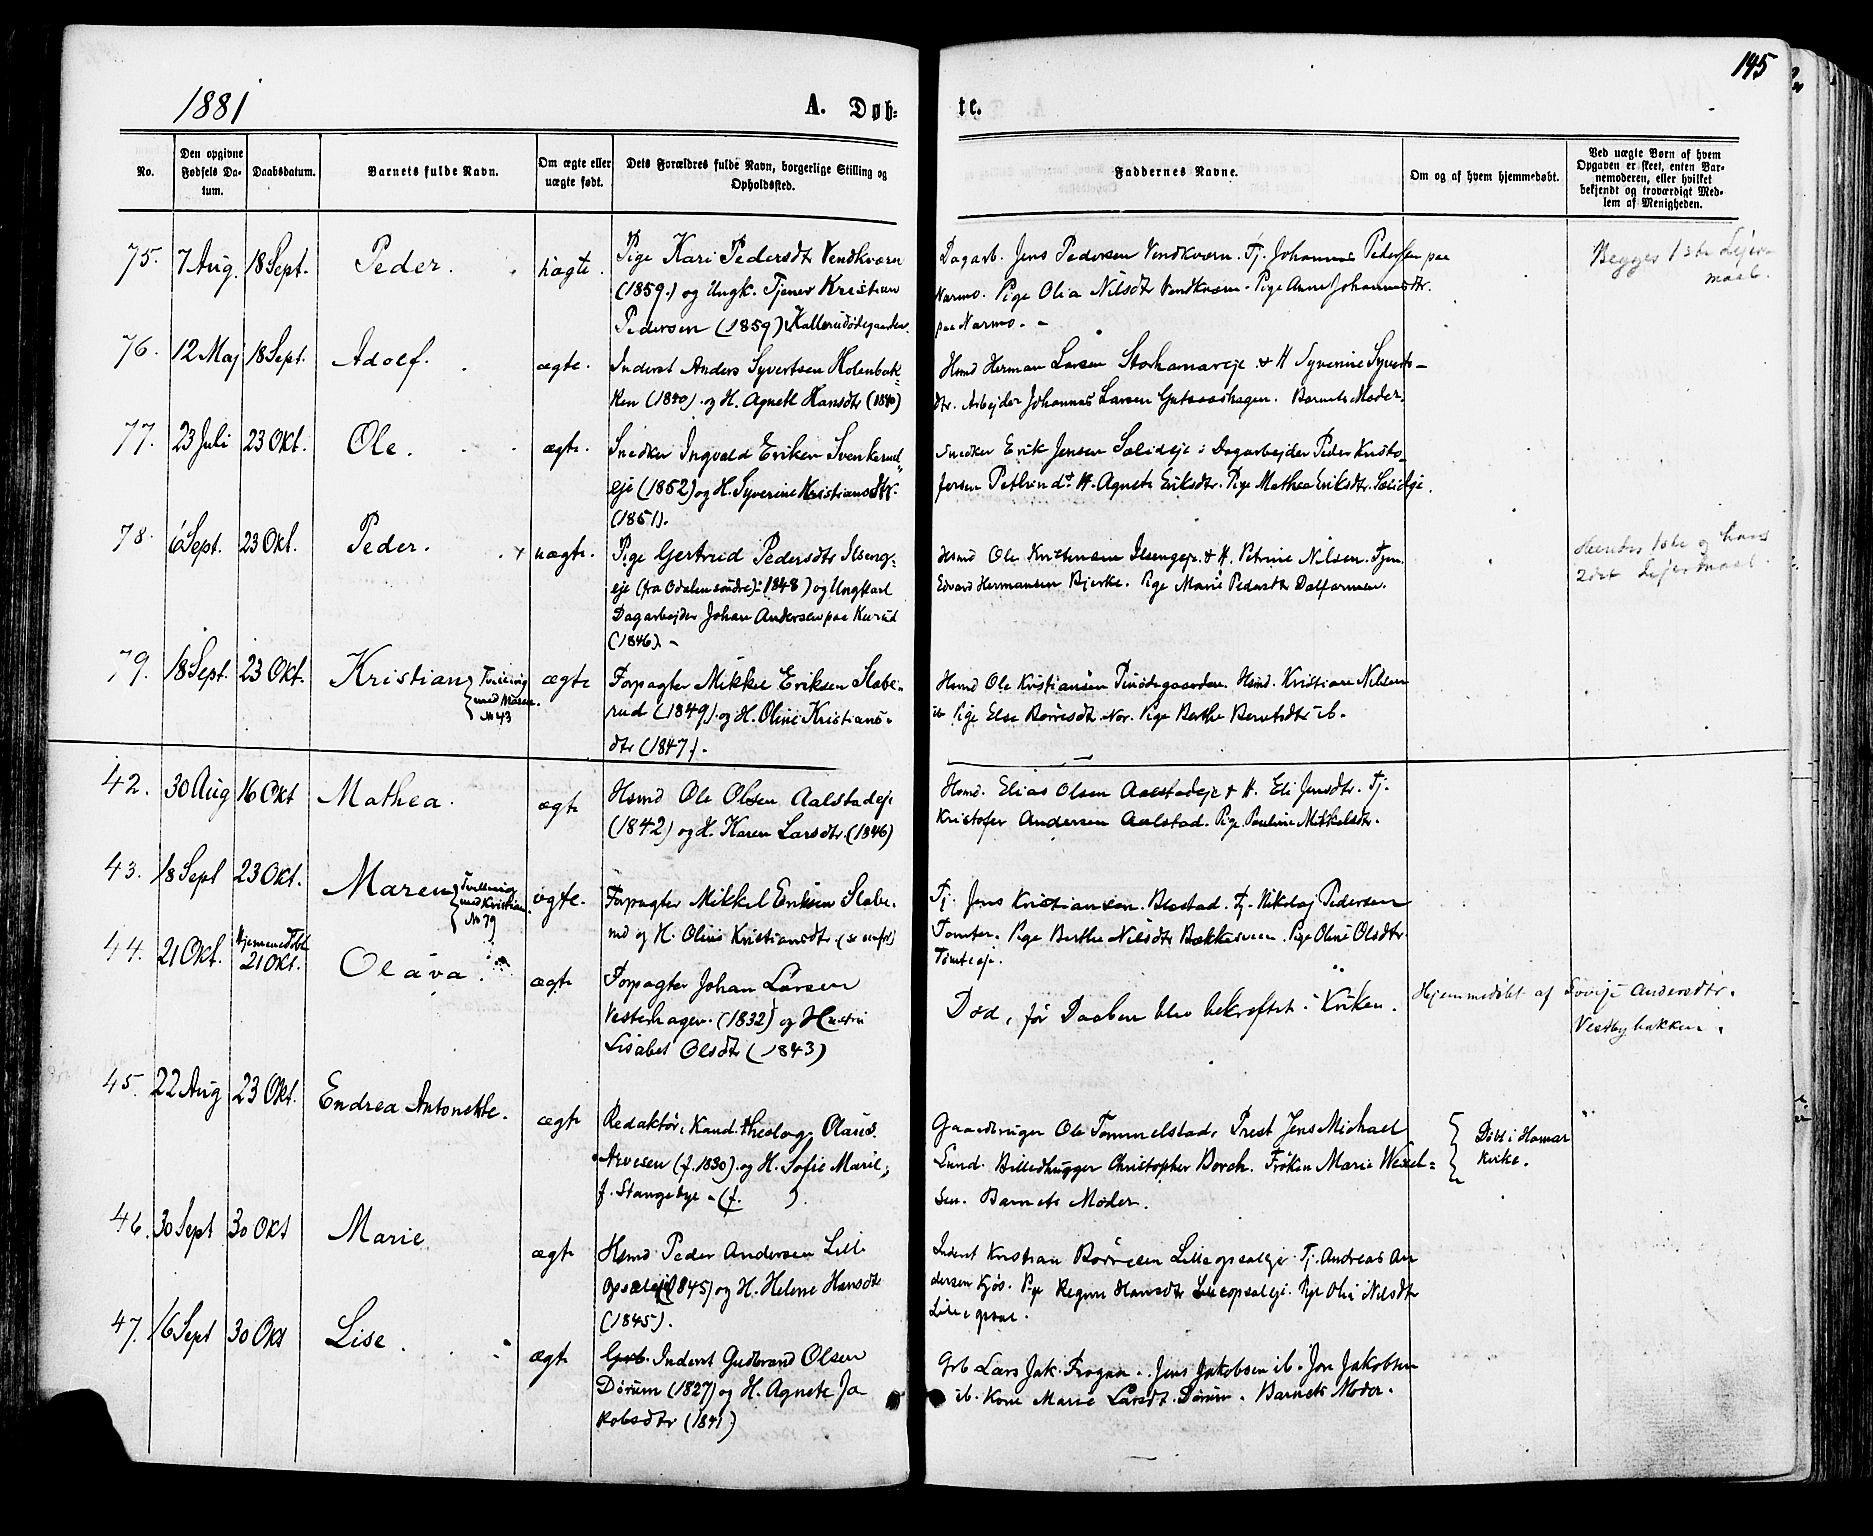 1881
A. Døb-
te.
145
No.
Den opgivne Fødsels Da-
tum.
Daabsdatum.
Barnets fulde Navn.
Om ægte eller
uægte født.
Dets Forældres fulde Navn, borgerlige Stilling og
Opholdssted.
Faddernes Navne.
Om og af hvem hjemmedøbt.
Ved uægte Børn af hvem
Opgaven er skeet, enten Bar-
nemoderen, eller hvilket
bekjendt og troværdigt Med-
lem af Menigheden.
75. 7 Aug. 18 Sept. Peder. uægte.
Pige Kari Pedersdtr Vendkværn
(1859.) og Ungk. Tjener Kristian
Pedersen (1859) Kallerudødegaarden.
Dagarb. Jens Pedersen Vendkværn. Tj. Johannes Pedersen paa
Narmo. Pige Olia Nilsdtr Vendkværn. Pige Anne Johannesdtr.
paa Narmo. -
Begges 1ste Leier-
maal.
76. 12 Maj 18 Sept. Adolf. ægte.
Inderst Anders Syvertsen Holenbak-
ken (1840) og H. Agnete Hansdtr (1840)
Hsmd Herman Larsen Storhamareje & H Syverine Syverts-
dtr. Arbejder Johannes Larsen Barnets Moder.
77. 23 Juli 23 Okt. Ole. ægte.
Snedker Ingvald Eriksen Svenkerud-
eje (1852) og H. Syverine Kristiansdtr.
(1851).
Snedker Erik Jensen Sælideje; Dagarbejder Peder Kristo-
fersen H. Agnete Eriksdtr. Pige Mathea Eriksdtr. Sælideje.
78. 6 Sept. 23 Okt. Peder. uægte.
Pige Gertrud Pedersdtr Ilseng-
eje (fra Odalen søndre): 1848) og Ungkarl
Dagarbejder Johan Andersen paa Kurud
(1846). -
Hsmd Ole Kristensen Ilsengeje. & H. Petrine Nilsen. Tjen.
Edvard Hermansen Bjerke. Pige Marie Pedersdtr Dalfarmen.
Hendes 1ste og hans
2det Leiermaal.
79. 18 Sept. 23 Okt. Kristian Tvilling
med Maren
No 43 ægte
Forpagter Mikkel Eriksen Slabe-
rud (1849). og H. Oline Kristians-
dtr (1847).
Hsmd Ole Kristiansen. Hsmd. Kristian Nilsen
ib Pige Else Børresdtr Nor. Pige Berthe Berntsdtr ib.
42. 30 Aug 16 Okt Mathea. ægte
Hsmd Ole Olsen Aalstadeje
(1842) og H. Karen Larsdtr (1846)
Hsmd. Elias Olsen Aalstadeje & H. Eli Jensdtr. Tj.
Kristofer Andersen Aalstad. Pige Pauline Mikkelsdtr.
43. 18 Sept 23 Okt. Maren Tvilling
med Kristian
No 79 ægte.
Forpagter Mikkel Eriksen Slabe-
rud og H. Oline Kristiansdtr. (se ovenfor)
Tj. Jens Kristiansen. Blestad. Tj. Nikolaj Pedersen
Tomter. Pige Berthe Nilsdtr Bækkesveen. Pige Oline Olsdtr.
Tomteeje.
44. 21 Okt. Hjemmedøbt
21 Okt. Olava. ægte
Forpagter Johan Larsen
Vesterhagen. (1832) og Hustru
Lisabet Olsdtr (1843)
Død, før Daaben blev bekræftet i Kirken.
Hjemmedøbt af Lovise Andersdtr.
Vestbybakken.
45. 22 Aug 23 Okt. Endrea Antonette. ægte
Redaktør, Kand. theolog. Olaus
Arvesen (f. 1830). og H. Sofie Marie,
f. Stangebye - (f. ).
Gaardbruger Ole Tommelstad, Prest Jens Michael
Lund. Billedhugger Christopher Borch. Frøken Marie Wexel-
sen. Barnets Moder.
Døbt i Hamar
Kirke.
46. 30 Sept 30 Okt Marie ægte
Hsmd Peder Andersen Lille
Opsaleje (1845) og H. Helene Hansdtr
(1845).
Inderst Kristian Børresen Lilleopsaleje. Tj. Andreas An
dersen Gjøs. Pige Regine Hansdtr Lilleopsaleje. Pige Olia Nilsdtr
Lilleopsal.
47. 16 Sept 30 Okt Lise. ægte
Grb. Inderst Gudbrand Olsen
Dørum (1827) og H. Agnete Ja
kobsdtr (1841)
Grb Lars Jak. Frogner. Jens Jakobsen ib. Jon Jakobsen
ib. Kone Marie Larsdt. Dørum. Barnets Moder.